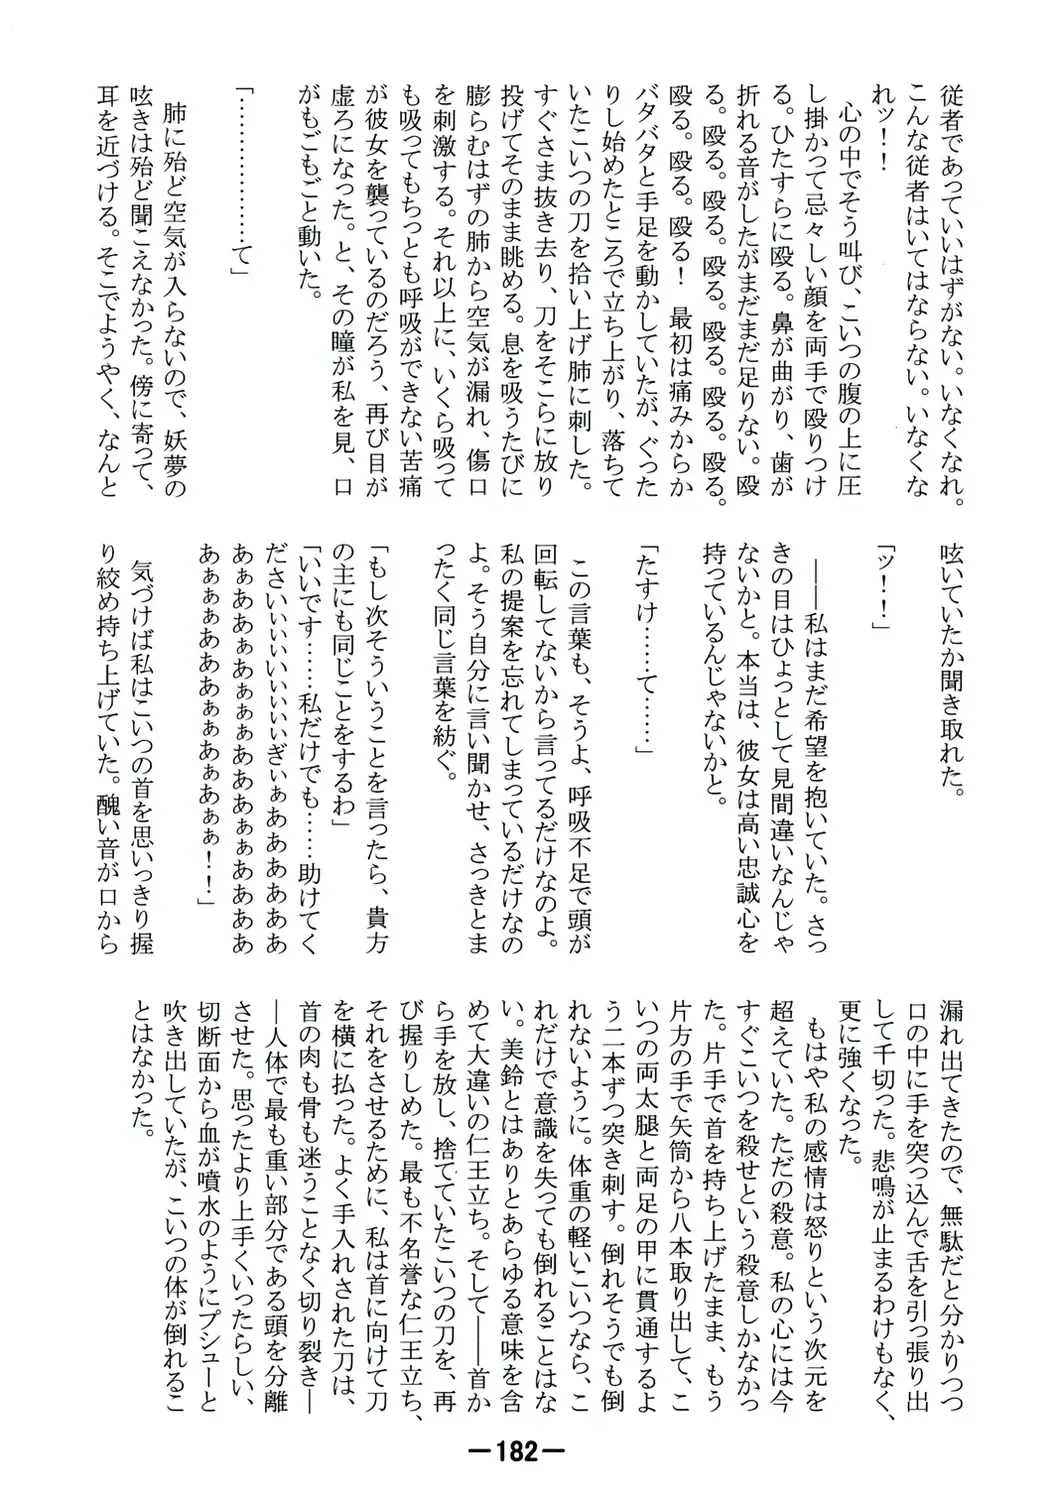 従者であっていいはずがない。いなくなれ。
こんな従者はいてはならない。いなくな
れッ！！
　心の中でそう叫び、こいつの腹の上に圧
し掛かって忌々しい顔を両手で殴りつけ
る。ひたすらに殴る。鼻が曲がり、歯が
折れる音がしたがまだまだ足りない。殴
る。殴る。殴る。殴る。殴る。殴る。殴る。
殴る。殴る。殴る！　最初は痛みからか
バタバタと手足を動かしていたが、ぐった
りし始めたところで立ち上がり、落ちて
いたこいつの刀を拾い上げ肺に刺した。
すぐさま抜き去り、刀をそこらに放り
投げてそのまま眺める。息を吸うたびに
膨らむはずの肺から空気が漏れ、傷口
を刺激する。それ以上に、いくら吸って
も吸ってもちっとも呼吸ができない苦痛
が彼女を襲っているのだろう、再び目が
虚ろになった。と、その瞳が私を見、口
がもごもごと動いた。
「………………て」
　肺に殆ど空気が入らないので、妖夢の
呟きは殆ど聞こえなかった。傍に寄って、
耳を近づける。そこでようやく、なんと
呟いていたか聞き取れた。
「ッ！！」
　――私はまだ希望を抱いていた。さっ
きの目はひょっとして見間違いなんじゃ
ないかと。本当は、彼女は高い忠誠心を
持っているんじゃないかと。
「たすけ……て……」
　この言葉も、そうよ、呼吸不足で頭が
回転してないから言ってるだけなのよ。
私の提案を忘れてしまっているだけなの
よ。そう自分に言い聞かせ、さっきとま
ったく同じ言葉を紡ぐ。
「もし次そういうことを言ったら、貴方
の主にも同じことをするわ」
「いいです……私だけでも……助けてく
ださいぃぃぃいぃぃぃぎぃぁあああああ
あぁああぁあぁぁああああぁぁああああ
あぁぁぁあああぁぁあぁあぁぁ！！」
　気づけば私はこいつの首を思いっきり握
り絞め持ち上げていた。醜い音が口から
漏れ出てきたので、無駄だと分かりつつ
口の中に手を突っ込んで舌を引っ張り出
して千切った。悲鳴が止まるわけもなく、
更に強くなった。
　もはや私の感情は怒りという次元を
超えていた。ただの殺意。私の心には今
すぐこいつを殺せという殺意しかなかっ
た。片手で首を持ち上げたまま、もう
片方の手で矢筒から八本取り出して、こ
いつの両太腿と両足の甲に貫通するよ
う二本ずつ突き刺す。倒れそうでも倒
れないように。体重の軽いこいつなら、こ
れだけで意識を失っても倒れることはな
い。美鈴とはありとあらゆる意味を含
めて大違いの仁王立ち。そして――首か
ら手を放し、捨てていたこいつの刀を、再
び握りしめた。最も不名誉な仁王立ち、
それをさせるために、私は首に向けて刀
を横に払った。よく手入れされた刀は、
首の肉も骨も迷うことなく切り裂き―
―人体で最も重い部分である頭を分離
させた。思ったより上手くいったらしい、
切断面から血が噴水のようにプシューと
吹き出していたが、こいつの体が倒れるこ
とはなかった。
－182－